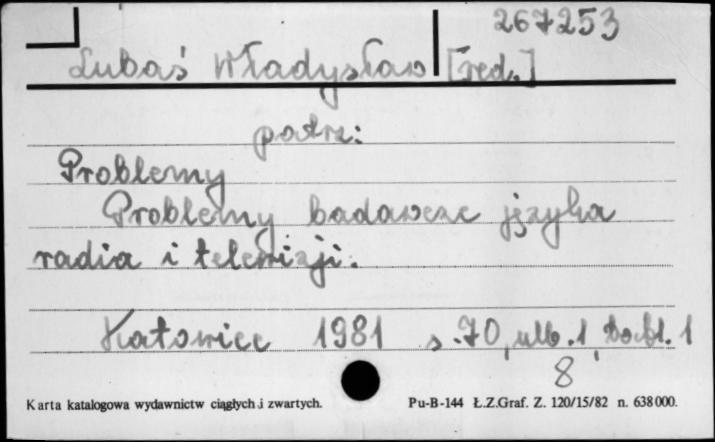 267253
Lubaś Władysław [red.]
patrz:
Problemy
Problemy badawcze języka
radia i telewizji.
Katowice 1981 s. 70, ulb. 1,
8
Karta katalogowa wydawnictw ciągłych i zwartych. Pu-B-144 Ł.Z.Graf. Z. 120/15/82 n. 638000.